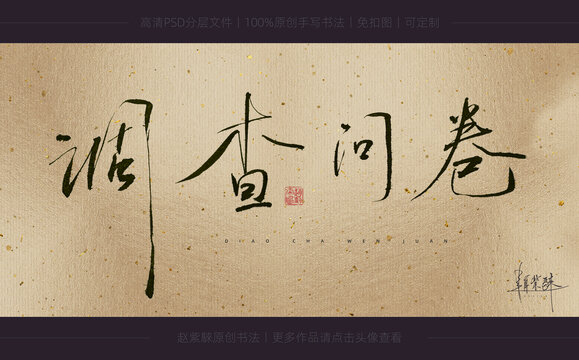 高清PSD分层文件丨100%原创手写书法丨免扣图丨可定制
调查问卷
DIAO CHA WEN JUAN
赵紫騄原创书法丨更多作品请点击头像查看